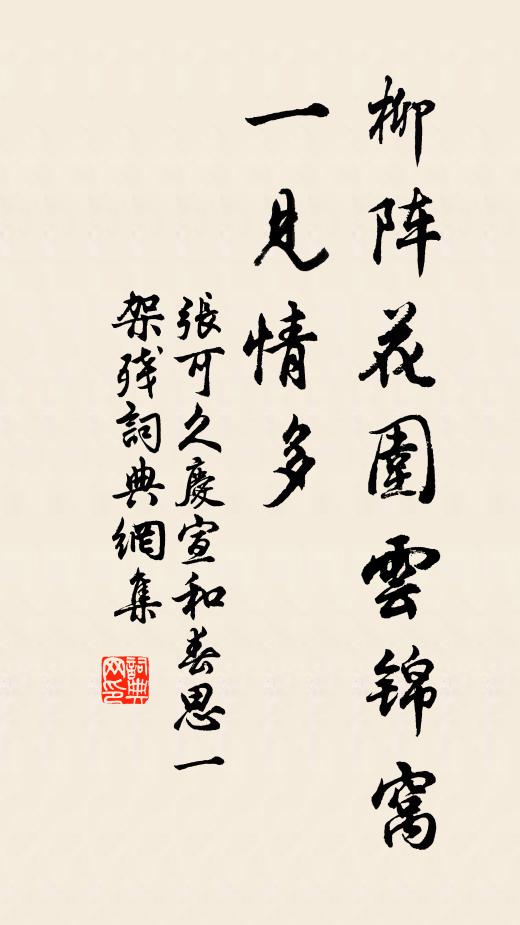 柳阵花圍雲錦窩
一見情多
張可久慶宣和春思一
架残詞典網集
詞典网印